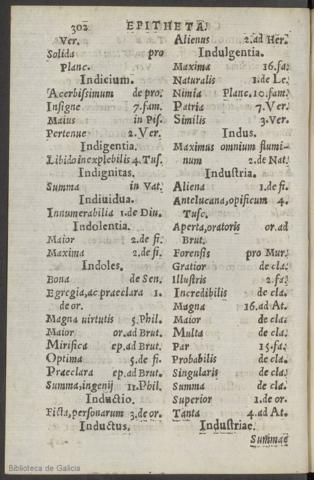 302 EPITHETA.
Ver.
Solida pro
Planc.
Indicium.
Acerbissimum de pro.
Insigne 7. fam.
Maius in Pis.
Pertenue 2. Ver.
Indigentia.
Libido inexplebilis 4. Tus.
Indignitas.
Summa in Vat.
Indiuidua.
Innumerabilia 1. de Diu.
Indolentia.
Maior 2. de fi.
Maxima 2. de fi.
Indoles.
Bona de Sen.
Egregia, ac praeclara 1.
de or.
Magna virtutis 5. Phil.
Maior or. ad Brut.
Mirifica ep. ad Brut.
Optima 5. de fi.
Praeclara ep. ad Brut.
Summa, ingenij 11. Phil.
Inductio.
Ficta, personarum 3. de or.
Inductus.
Alienus 2. ad Her.
Indulgentia.
Maxima 16. fa.
Naturalis 1. de Le.
Nimia Planc. 10. fam.
Patria 7. Ver.
Similis 3. Ver.
Indus.
Maximus omnium flumi-
num 2. de Nat.
Industria.
Aliena 1. de fi.
Antelucana, opificum 4.
Tusc.
Aperta, oratoris or. ad
Brut.
Forensis pro Mur.
Gratior de cla.
Illustris 2. fa.
Incredibilis de cla.
Magna 16. ad At.
Maior de cla.
Multa de cla.
Par 15. fa.
Probabilis de cla.
Singularis de cla.
Summa de cla.
Superior 1. de or.
Tanta 4. ad At.
Industriae.
Summae
Biblioteca de Galicia